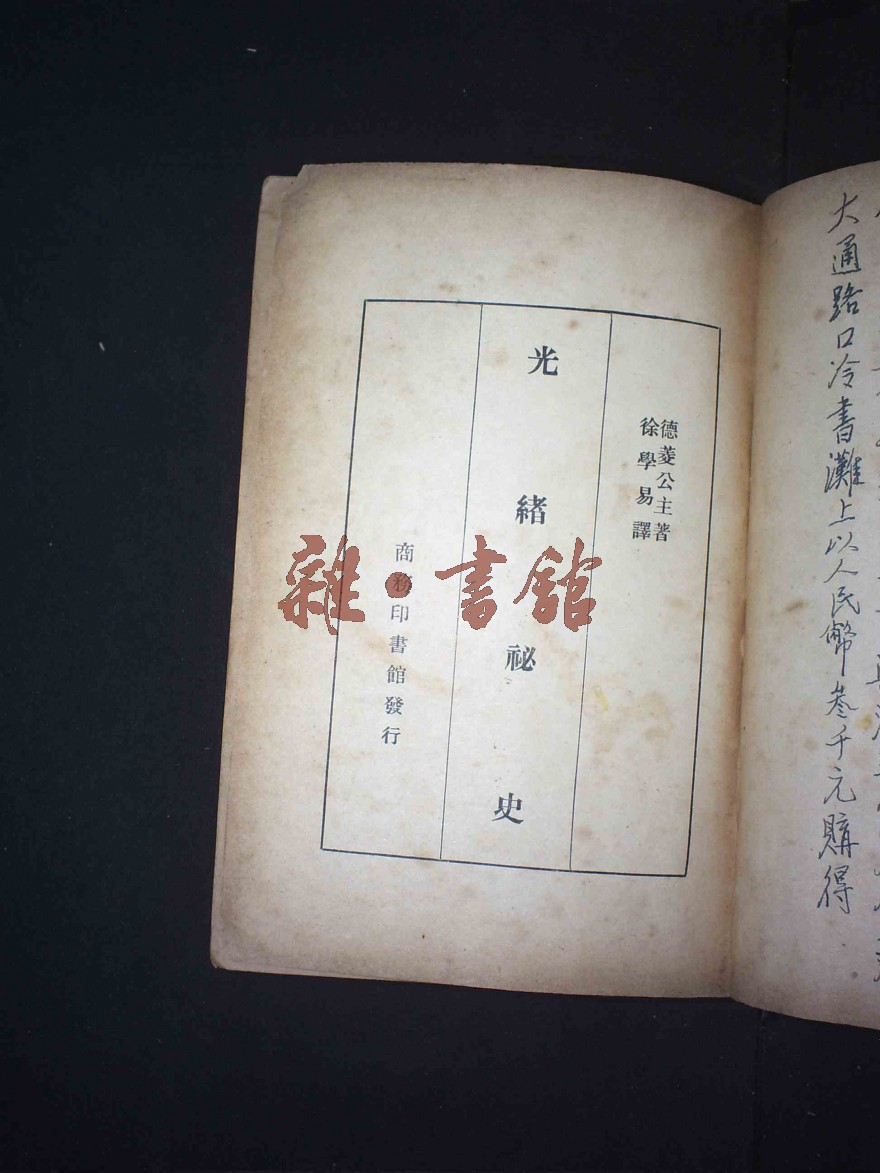 大通路口冷書灘上以人民幣叁千元購得
德菱公主著
徐學易譯
光緒祕史
商務印書館發行
雜·書館